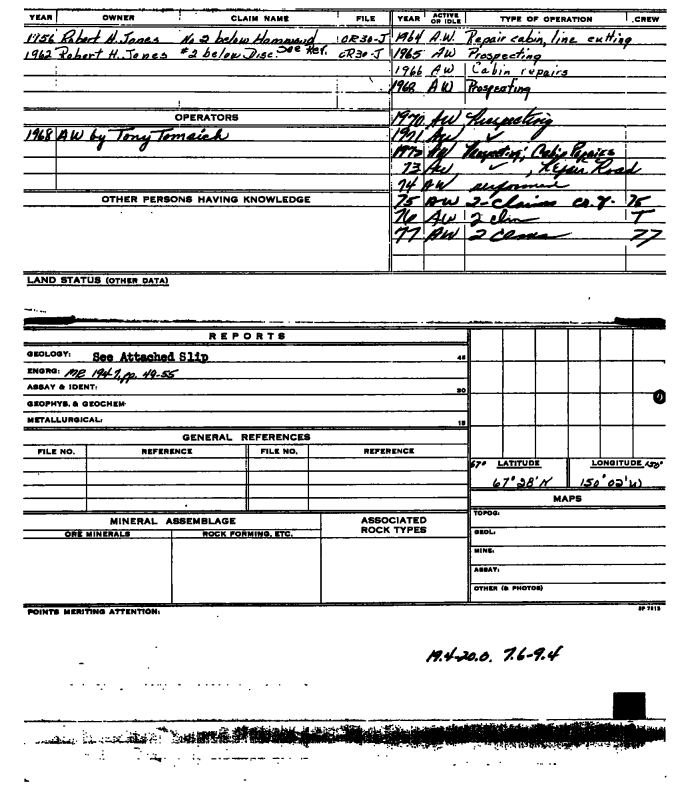 YEAR OWNER CLAIM NAME FILE YEAR ACTIVE OR IDLE TYPE OF OPERATION CREW
1956 Robert H. Jones No 2 below Hammond OR30-J 1964 A.W. Repair cabin, line cutting
1962 Robert H. Jones #2 below Disc. See Ref. OR30-J 1965 AW Prospecting
1966 AW Cabin repairs
1968 AW Prospecting
OPERATORS
1970 AW Prospecting
1968 AW by Tony Tomsich
1971 AW ✓
1972 AW Prospecting, Cabin Repairs
73 AW ✓, Repair Road
74 AW performed
OTHER PERSONS HAVING KNOWLEDGE
75 AW 2-Claims 75
76 AW 2 clm
77 AW 2 77
LAND STATUS (OTHER DATA)
REPORTS
GEOLOGY: See Attached Slip 45
ENGRG: MR 194-7, pp. 49-55
ASSAY & IDENT: 30
GEOPHYS. & GEOCHEM:
METALLURGICAL: 15
GENERAL REFERENCES
FILE NO. REFERENCE FILE NO. REFERENCE
67° LATITUDE LONGITUDE 150°
67°28'N 150°02'W
MAPS
TOPOG:
MINERAL ASSEMBLAGE ASSOCIATED ROCK TYPES
ORE MINERALS ROCK FORMING, ETC.
GEOL:
MINE:
ASSAY:
OTHER (& PHOTOS)
POINTS MERITING ATTENTION:
19.4-20.0, 7.6-9.4